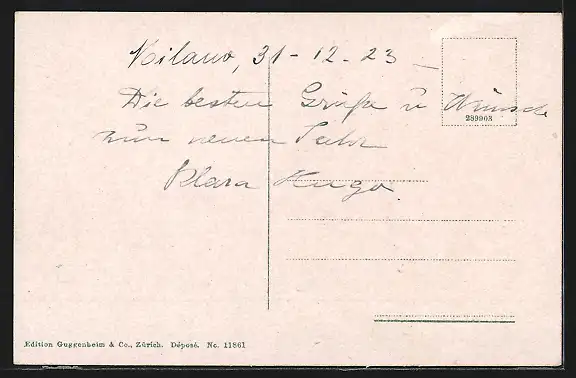 Milano, 31-12-23 –
Die besten Grüße u Wünsche
289903
zum neuen Jahr
Klara Hugo.
Edition Guggenheim & Co., Zürich. Déposé. No. 11861